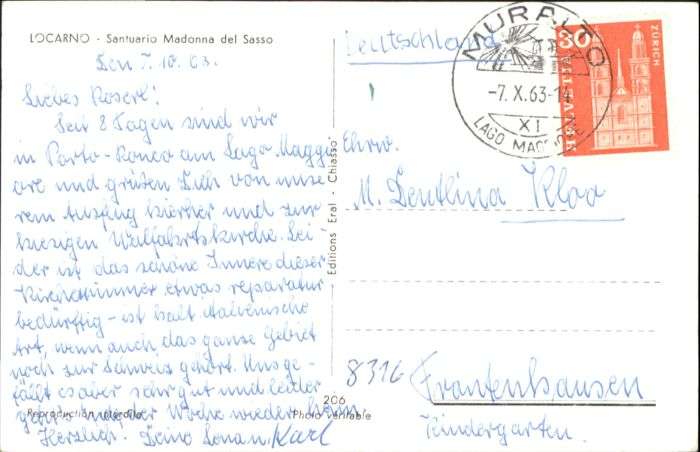 LOCARNO - Santuario Madonna del Sasso
Den 7. 10. 63.
Liebes Roserl!
Seit 8 Tagen sind wir
in Porto-Ronco am Lago Maggi
ore und grüßen Dich von unse
rem Ausflug hierher und zur
hiesigen Wallfahrtskirche. Lei-
der ist das schöne Innere dieser
Kirche immer etwas reparatur
bedürftig - ist halt italienische
Art, wenn auch das ganze Gebiet
noch zur Schweiz gehört. Uns ge-
fällt es aber sehr gut und leider
geht's nach der Woche wieder heim
Herzlich. Deine Lona u. Karl
Reproduction interdite
206
Photo véritable
Editions Eral - Chiasso
Deutschland
MURALTO
-7. X. 63-14
XI
LAGO MAGGIORE
30
HELVETIA
ZÜRICH
Ehrw.
M. Deutlina Kloo
8316 Frontenhausen
Kindergarten.